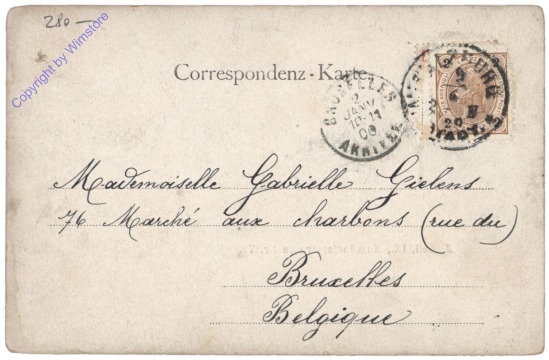 280—
Copyright by Wimstore
Correspondenz-Karte
BRUXELLES
2
JANV
10-11
00
ARRIVEE
Mademoiselle Gabrielle Gielens
76 Marché aux charbons (rue du)
Bruxelles
Belgique